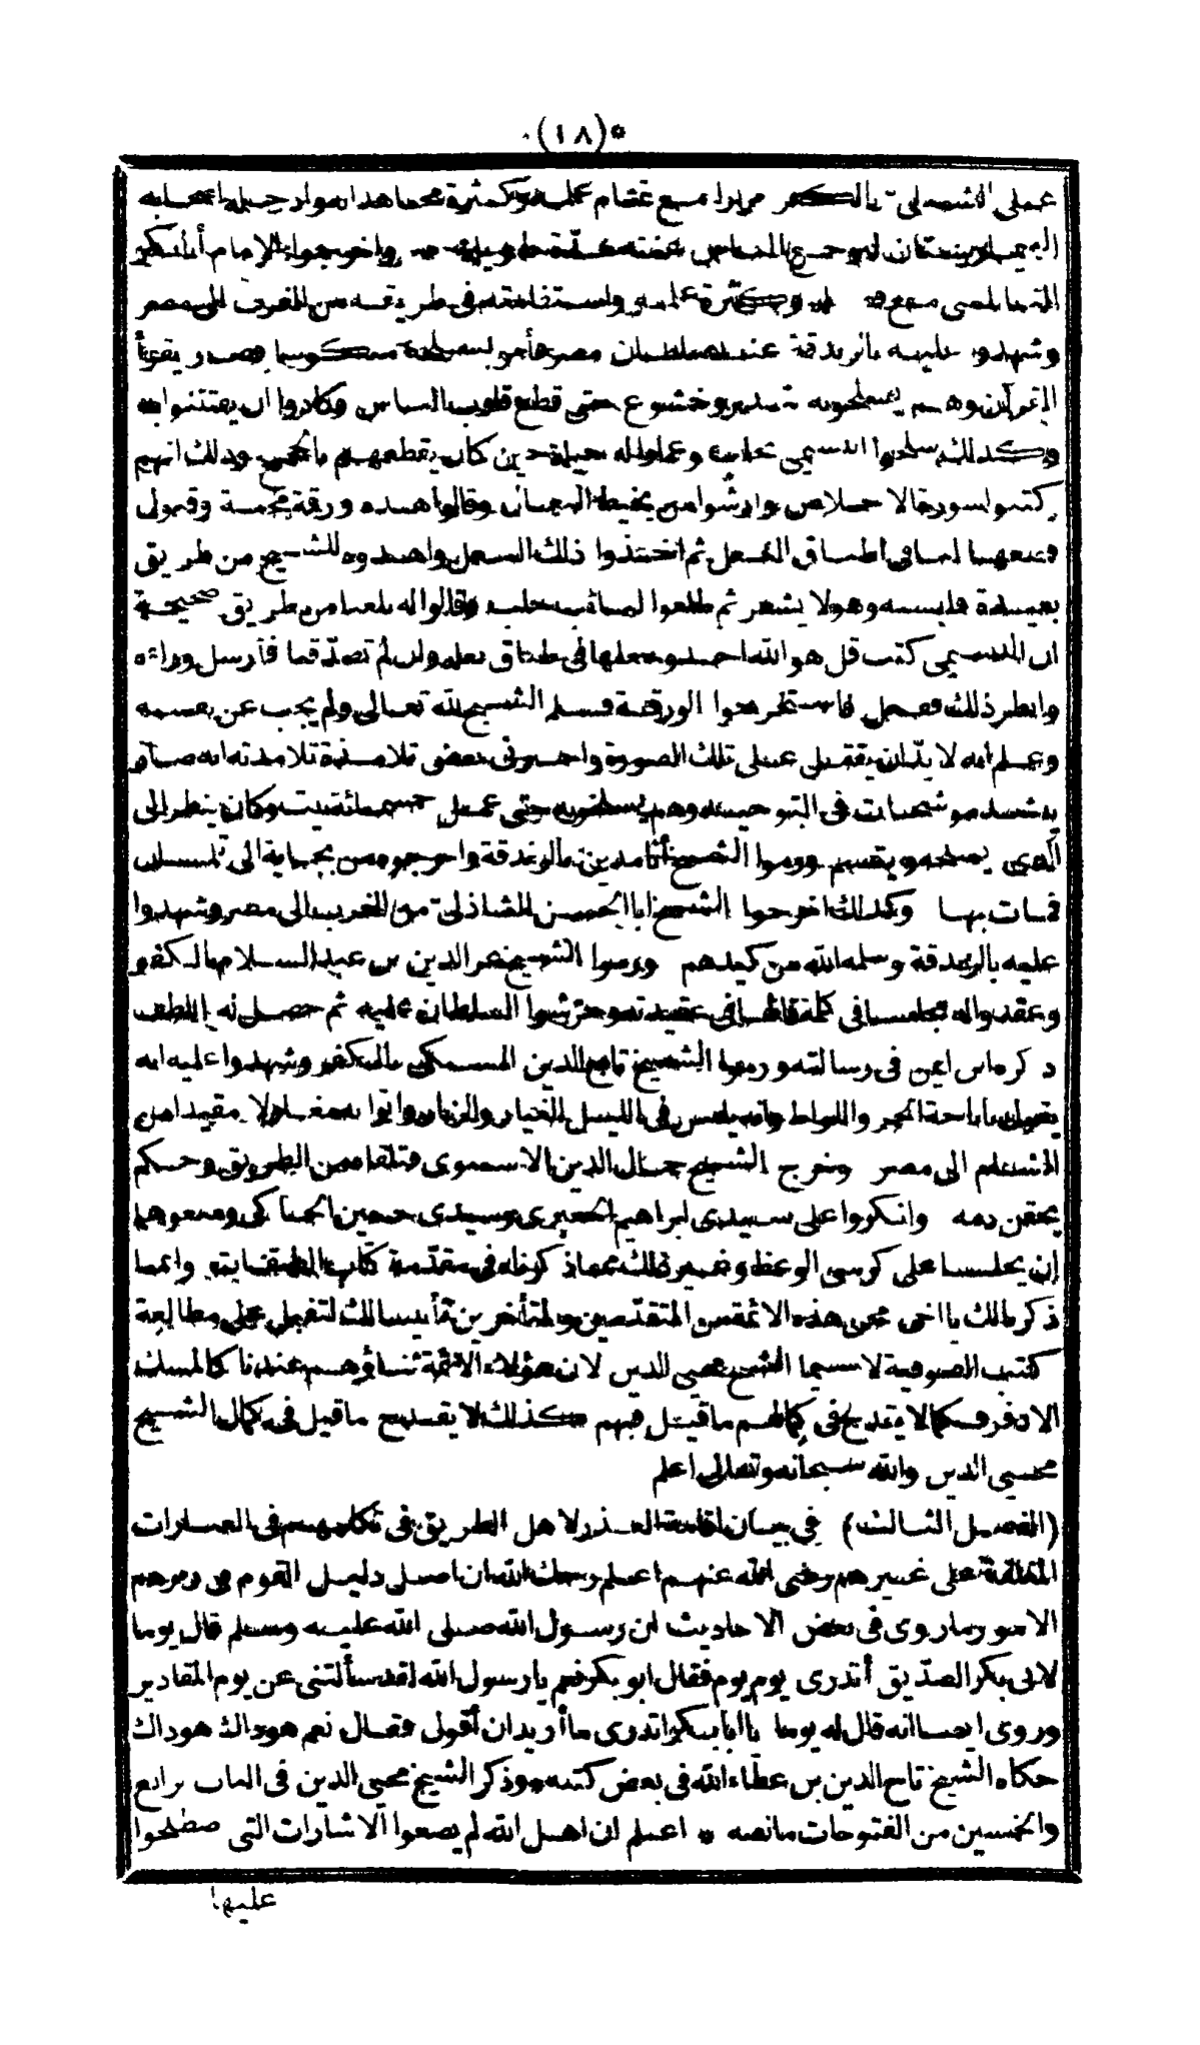 *(١٨)*
على الشبلي بالكفر مرارا مع تمام علمه وكثرة مجاهداته وادخله اصحابه
البيمارستان ليرجع الناس عنه مدة طويلة واخرجوا الامام أبا بكر
النابلسي مع فضله وكثرة علمه واستقامته في طريقه من المغرب الى مصر
وشهدوا عليه بالزندقة عند سلطان مصر فأمر بسلخه منكوسا فصار يقرأ
القرآن وهم يسلخونه بتدبر وخشوع حتى قطع قلوب الناس وكادوا ان يفتتنوا به
وكذلك سلخوا النسيمي بحلب وعملوا له حيلة حين كان يقطعهم بالحجج وذلك انهم
كتبوا سورة الاخلاص وارشوا من يخيط النعال وقالوا هذه ورقة محبة وقبول
فضعها لنا في اطباق النعل ثم اخذوا ذلك النعل واهدوه للشيخ من طريق
بعيدة فلبسه وهو لا يشعر ثم طلعوا لنائب حلب وقالوا له بلغنا من طريق صحيحة
ان النسيمي كتب قل هو الله احد وجعلها في طباق نعله وان لم تصدقنا فأرسل وراءه
وانظر ذلك ففعل فاستخرجوا الورقة فسلم الشيخ لله تعالى ولم يجب عن نفسه
وعلم انه لا بد ان يقتل على تلك الصورة واخبرني بعض تلامذة تلامذته انه صار
ينشد موشحات في التوحيد وهم يسلخونه حتى عمل خمسمائة بيت وكان ينظر الى
الذي يسلخه ويتبسم ورموا الشيخ أبا مدين بالزندقة واخرجوه من بجاية الى تلمسان
فمات بها وكذلك اخرجوا الشيخ ابا الحسن الشاذلي من المغرب الى مصر وشهدوا
عليه بالزندقة وسلمه الله من كيدهم ورموا الشيخ عز الدين بن عبد السلام بالكفر
وعقدوا له مجلسا في كلمة قالها في عقيدته وحرشوا السلطان عليه ثم حصل له اللطف
ذكره ابن ايمن في رسالته ورموا الشيخ تاج الدين السبكي بالكفر وشهدوا عليه انه
يقول باباحة الخمر واللواط وانه يلبس في الليل الغيار والزنار واتوا به مغلولا مقيدا من
الشام الى مصر وخرج الشيخ جمال الدين الاسنوي فتلقاه من الطريق وحكم
بحقن دمه وانكروا على سيدي ابراهيم الجعبري وسيدي حسين الجاكي ومنعوهما
ان يجلسا على كرسي الوعظ وغير ذلك مما ذكرناه في مقدمة كتاب الطبقات وانما
ذكرنا لك يا اخي محن هذه الائمة من المتقدمين والمتأخرين تأنيسا لك لتقبل على مطالعة
كتب الصوفية لا سيما الشيخ محيي الدين لان هؤلاء الائمة ثناؤهم عندنا كالمسك
الاذفر فكما لا يقدح في كمالهم ما قيل فيهم كذلك لا يقدح ما قيل في كمال الشيخ
محيي الدين والله سبحانه وتعالى اعلم
(الفصل الثالث) في بيان اقامة العذر لاهل الطريق في تكلمهم في العبارات
المغلقة على غيرهم رضي الله عنهم اعلم رحمك الله ان اصل دليل القوم في رمزهم
الامور ما روى في بعض الاحاديث ان رسول الله صلى الله عليه وسلم قال يوما
لابي بكر الصديق أتدري يوم يوم فقال ابو بكر نعم يا رسول الله لقد سألتني عن يوم المقادير
وروى ايضا انه قال له يوما يا ابا بكر اتدري ما أريد ان أقول فقال نعم هو ذاك هو ذاك
حكاه الشيخ تاج الدين بن عطاء الله في بعض كتبه وذكر الشيخ محيي الدين في الباب الرابع
والخمسين من الفتوحات ما نصه * اعلم ان اهل الله لم يضعوا الاشارات التي اصطلحوا
عليها